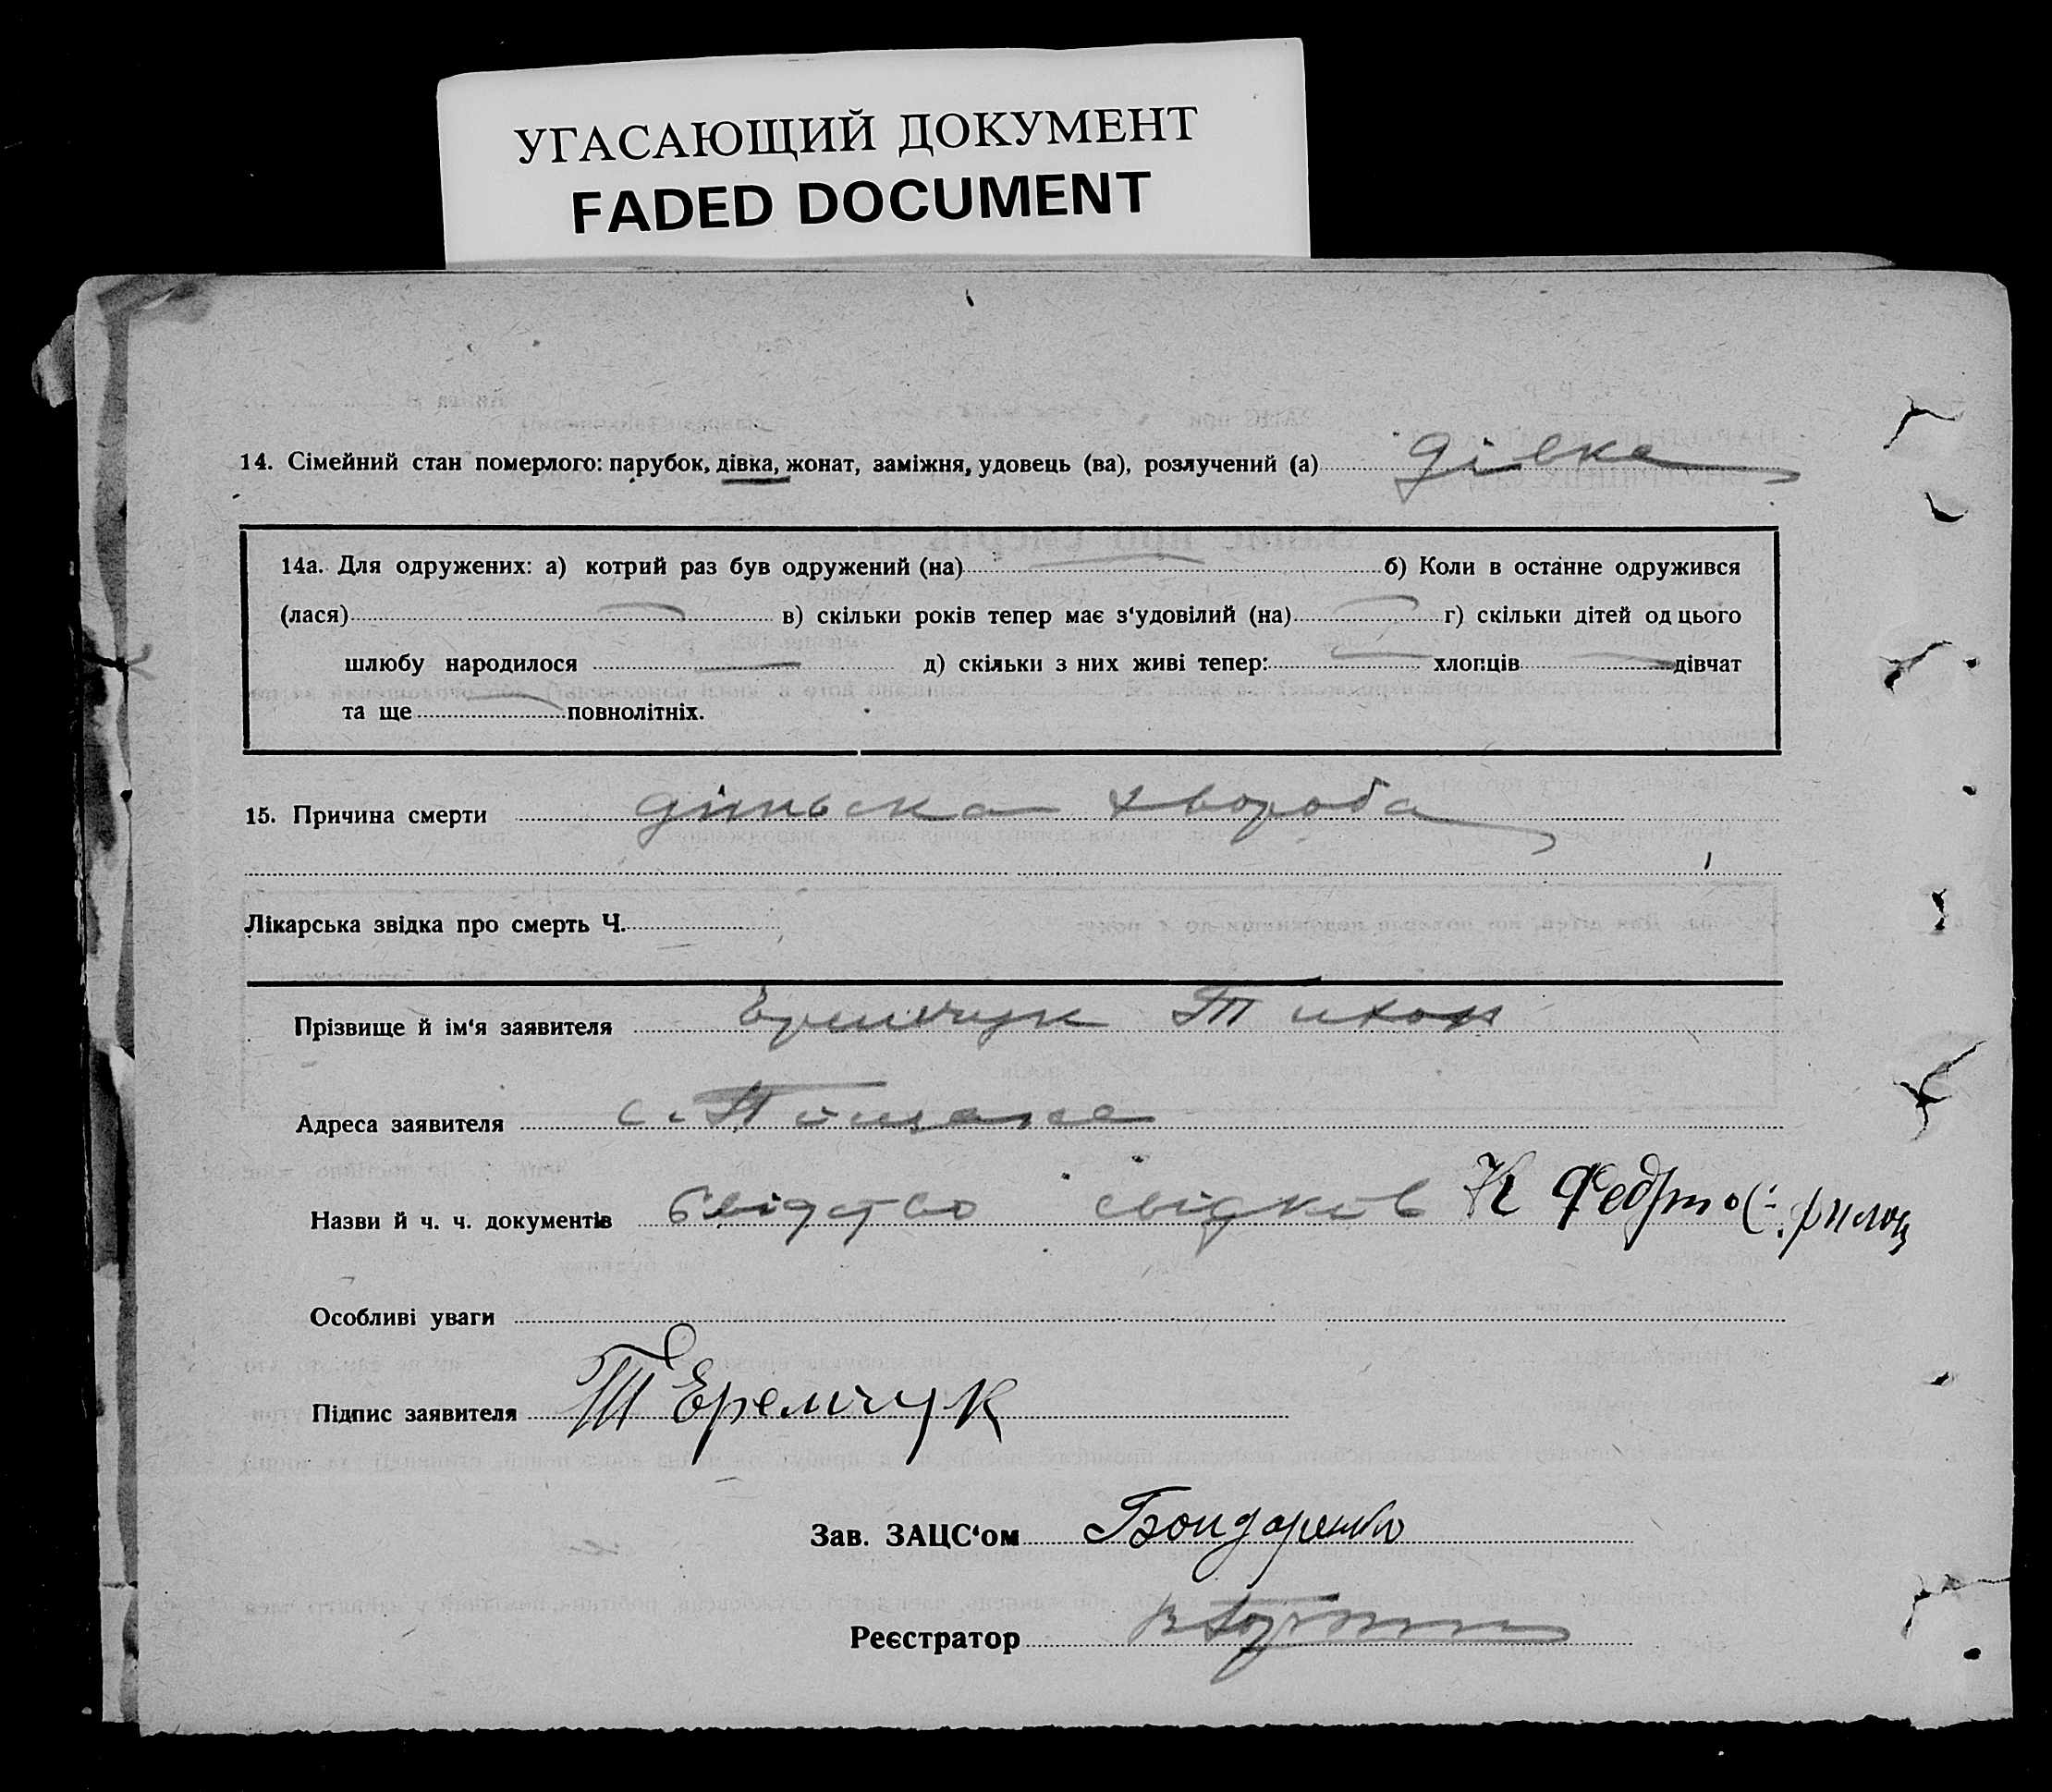 УГАСАЮЩИЙ ДОКУМЕНТ
FADED DOCUMENT
14. Сімейний стан померлого: парубок, дівка, жонат, заміжня, удовець (ва), розлучений (а) дівка
14а. Для одружених: а) котрий раз був одружений (на) б) Коли в останне одружився
(лася) в) скільки років тепер має з‘удовілий (на) г) скільки дітей од цього
шлюбу народилося д) скільки з них живі тепер: хлопців дівчат
та ще повнолітніх.
15. Причина смерти хвороба
Лікарська звідка про смерть Ч.
Прізвище й ім‘я заявителя Еремчук Тихон
Адреса заявителя с.
Назви й ч. ч. документів свідков
Особливі уваги
Підпис заявителя Т Еремчук
Зав. ЗАЦС‘ом Бондаренко
Реєстратор